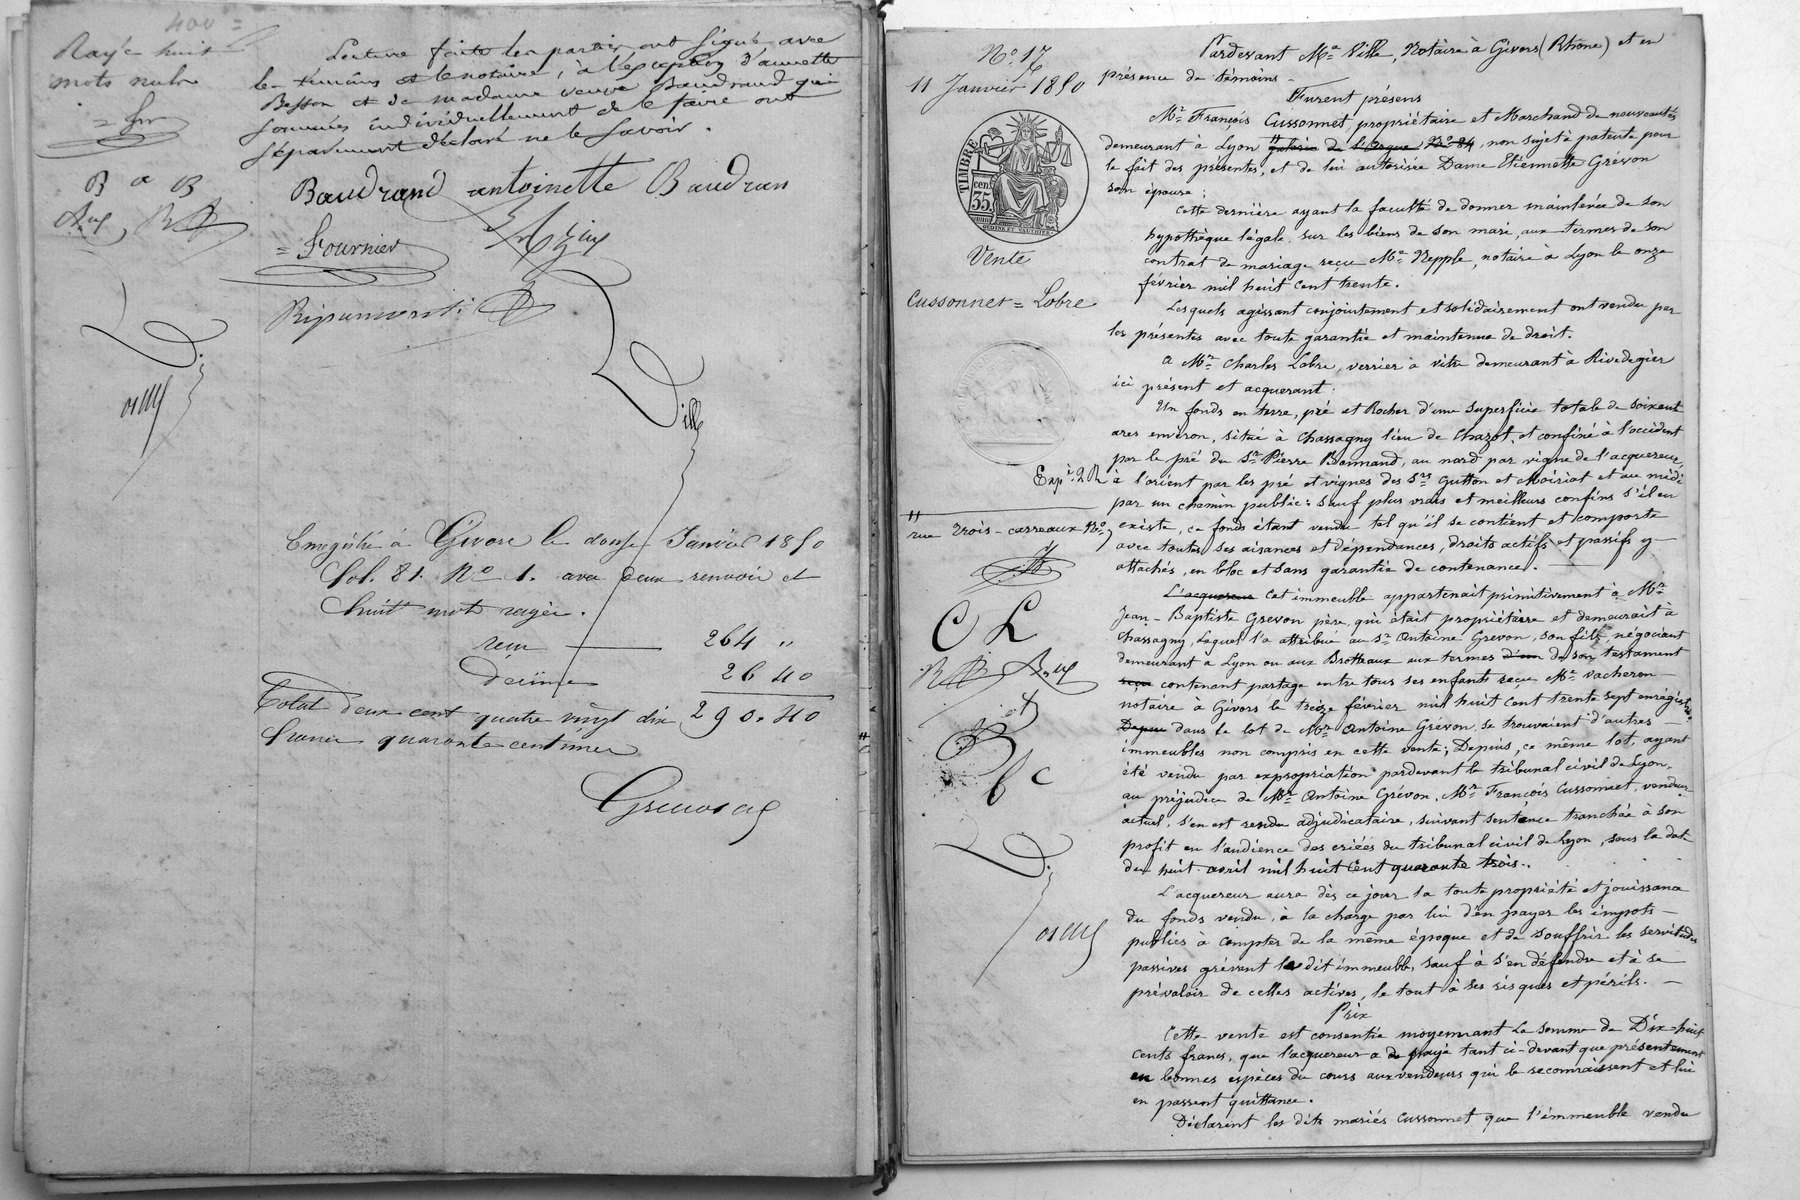 400 =
Rayé huit
mots nuls
Lecture faite les parties ont signé avec
les témoins et le notaire, à l'exception d'annette
Besson et de madame veuve Baudrand qui
sommées individuellement de le faire ont
séparément déclaré ne le savoir.
B a B
Baudrand antoinette Baudran
= Fournier
Enregistré à Givors le douze Janvier 1850
fol. 81. No 1. avec deux renvois et
huit mots rayés.
reçu 264 "
Decime 26 40
Total deux cent quatre vingt dix 290.40
francs quarante centimes
No. 17
11 Janvier 1850
TIMBRE
35 cen.
Vente
Cussonnet = Lobre
Expé. 2 R
"
rue Trois-carreaux No. 7
C L
et
B
b c
Pardevant Me Ville, Notaire à Givors (Rhône) et en
présence de témoins -
Furent présens
Mr. François Cussonnet, propriétaire et Marchand de nouveautés
demeurant à Lyon " galerie de L'Argue No. 84, non sujet à patente pour
le fait des présentes, et de lui autorisée Dame Etiennette Grévon
son épouse ;
Cette dernière ayant la faculté de donner mainlevée de son
hypothèque légale, sur les biens de son mari, aux termes de son
contrat de mariage reçu Me. Repple, notaire à Lyon le onze
février mil huit cent trente.
Lesquels agissant conjointement et solidairement ont vendu par
les présentes avec toute garantie et maintenue de droit.
a Mr. Charles Lobre, verrier à vitre demeurant à Rivedegier
ici présent et acquerant ;
Un fonds en terre, pré et Rocher d'une superficie totale de soixante
ares environ, situé à Chassagny lieu de Chazot, et confiné à l'occident
par le pré du Sr. Pierre Bonnand, au nord par vigne de l'acquereur,
à l'orient par les pré et vignes des Srs Gutton et Moiriat et au midi
par un chemin public ; sauf plus vrais et meilleurs confins s'il en
existe, ce fonds étant vendu tel qu'il se contient et comporte
avec toutes ses aisances et dépendances, droits actifs et passifs y
attachés, en bloc et sans garantie de contenance.
L'acquereur Cet immeuble appartenait primitivement à Mr.
Jean-Baptiste Grevon père, qui était propriétaire et demeurait à
Chassagny, Lequel l'a attribué au Sr. Antoine Grevon, son fils, négociant
demeurant à Lyon ou aux Brotteaux aux termes d'un de son testament
reçu contenant partage entre tous ses enfants reçu Me. Vacheron
notaire à Givors le treize février mil huit cent trente sept enrégistré.
Depuis dans le lot de Mr. Antoine Grévon, se trouvaient d'autres
immeubles non compris en cette vente ; Depuis, ce même lot, ayant
été vendu par expropriation pardevant le tribunal civil de Lyon,
au préjudice de Mr. Antoine Grévon, Mr. François Cussonnet, vendeur
actuel, s'en est rendu adjudicataire, suivant sentence tranchée à son
profit en l'audience des criées du tribunal civil de Lyon, sous la date
du huit avril mil huit cent quarante trois.
L'acquereur aura dès ce jour la toute propriété et jouissance
du fonds vendu, à la charge par lui d'en payer les impots
publics à compter de la même époque et de souffrir les servitudes
passives grévant le dit immeuble, sauf à s'en défendre et à se
prévaloir de celles actives, le tout à ses risques et périls.
Prix
Cette vente est consentie moyennant la somme de Dix-huit
cents francs, que l'acquereur a de payé tant ci-devant que présentement
en bonnes espèces du cours aux vendeurs qui le reconnaissent et lui
en passent quittance.
Déclarent les dits mariés Cussonnet que l'immeuble vendu